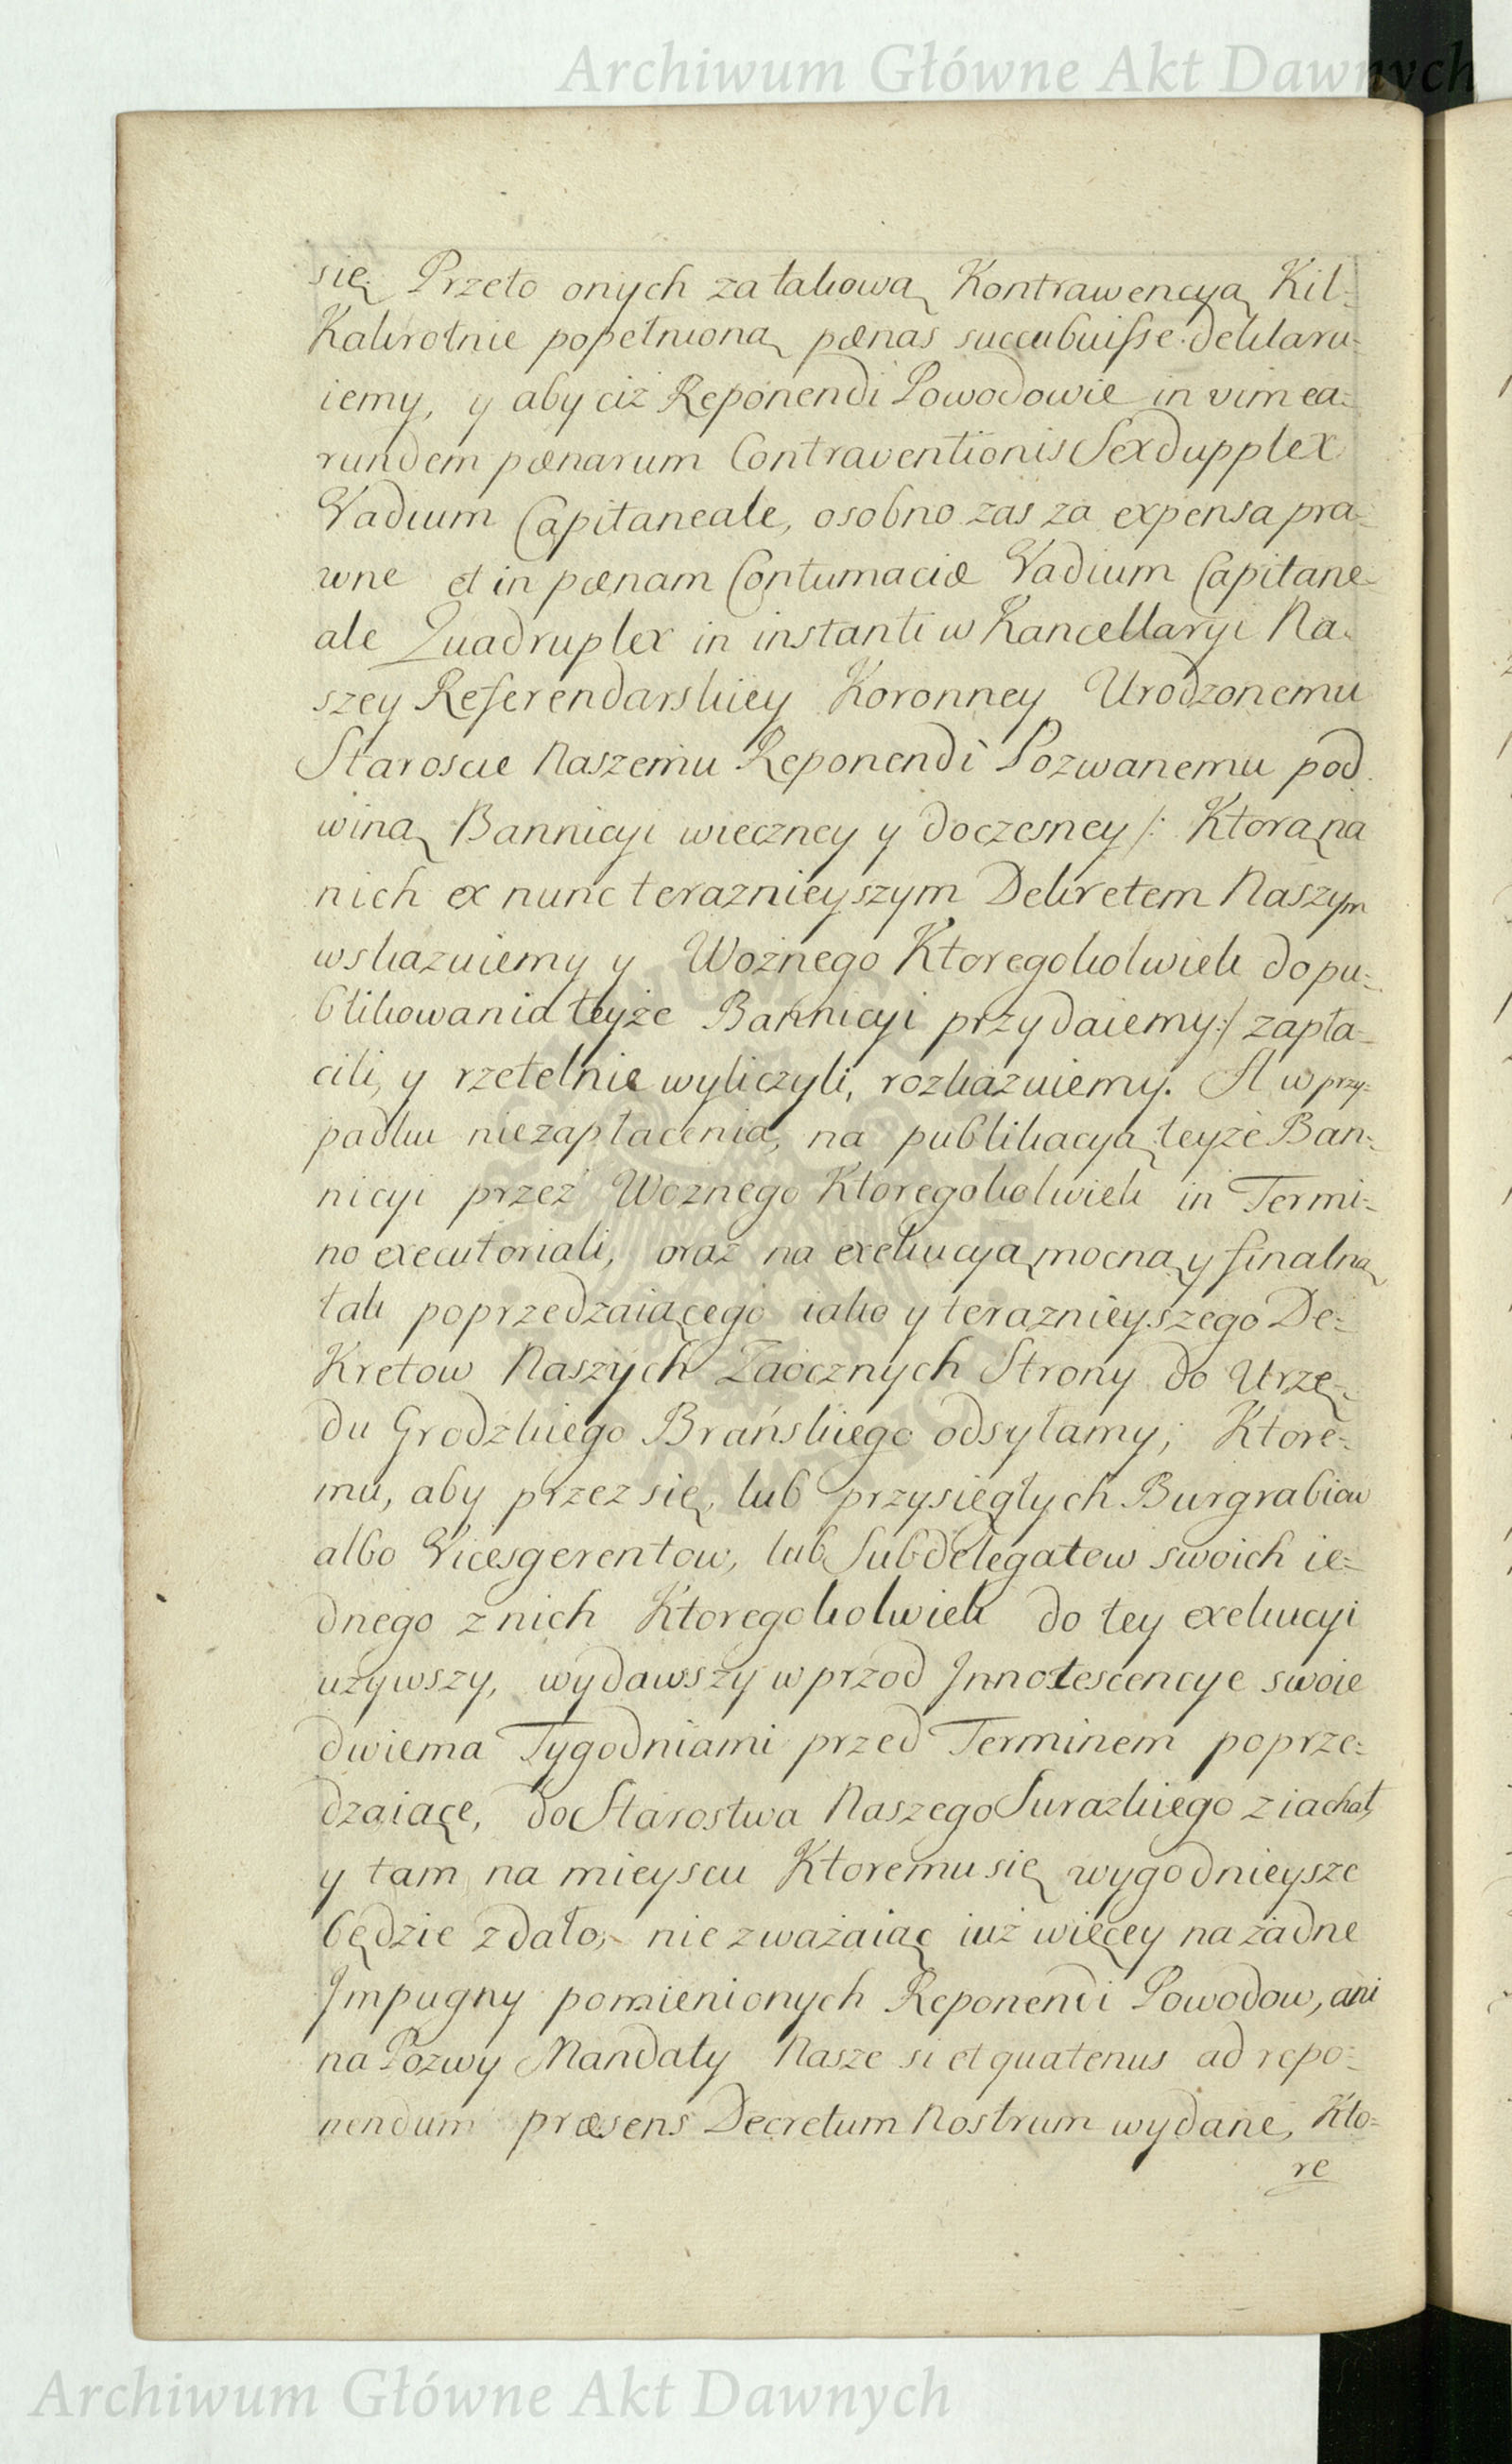 Archiwum Główne Akt Dawnych
się. Przeto onych za takową Kontrawencyą Kil=
Kakrotnie popełnioną pænas succubuisse deklaru=
iemy, y aby ciż Reponendi Powodowie in vim ea=
rundem pænarum Contraventionis Sexdupplex
Vadium Capitaneale, osobno zas za expensa pra=
wne et in pænam Contumaciæ Vadium Capitane=
ale Quadruplex in instanti w Kancellaryi Na=
szey Referendarskiey Koronney Urodzonemu
Staroscie Naszemu Reponendi Pozwanemu pod
winą Bannicyi wieczney y doczesney /: Ktorą na
nich ex nunc teraznieyszym Dekretem Naszym
wskazuiemy y Woźnego Ktoregokolwiek do pu=
blikowania teyże Bannicyi przydaiemy :/ zapła=
cili, y rzetelnie wyliczyli, rozkazuiemy. A w przy=
padku niezapłacenia, na publikacyą teyże Ban=
nicyi przez Woznego Ktoregokolwiek in Termi=
no executoriali, oraz na exekucyą mocną y finalną
tak poprzedzaiącego iako y teraznieyszego De=
Kretow Naszych Zaocznych Strony do Urzę=
du Grodzkiego Brańskiego odsyłamy; Ktore=
mu, aby przez się, lub przysięgłych Burgrabiow
albo Vicesgerentow, lub Subdelegatow swoich ie=
dnego z nich Ktoregokolwiek do tey exekucyi
używszy, wydawszy wprzod Innotescencye swoie
dwiema Tygodniami przed Terminem poprze=
dzaiące, do Starostwa Naszego Surazkiego ziachał,
y tam na mieyscu Ktoremu się wygodnieysze
będzie zdało, nie zważaiąc iuż więcey na żadne
Impugny pomienionych Reponendi Powodow, ani
na Pozwy Mandaty Nasze si et quatenus ad repo=
nendum præsens Decretum Nostrum wydane, Kto=
re
Archiwum Główne Akt Dawnych